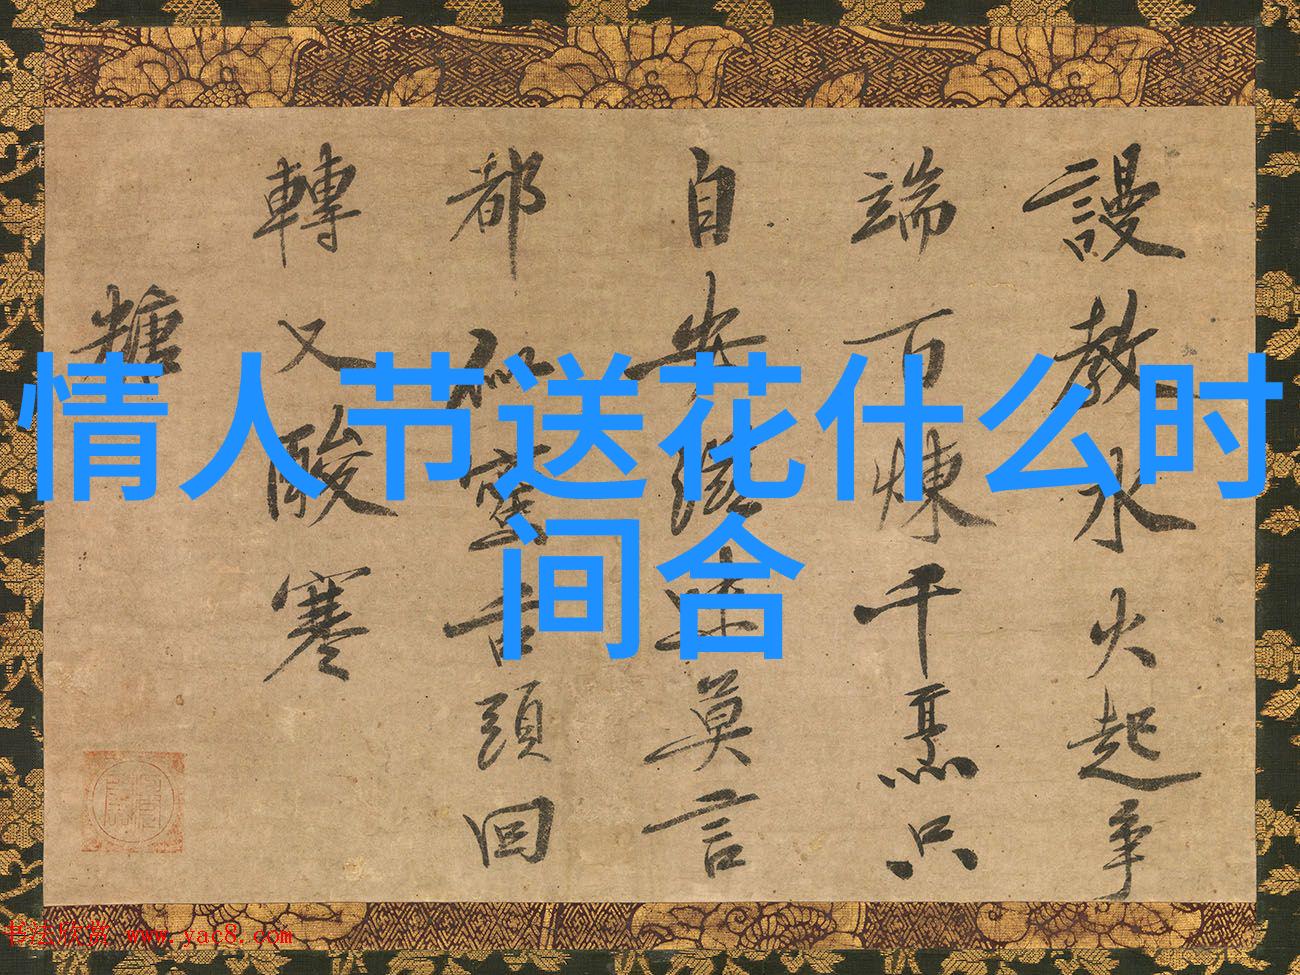 情人节送花什么时
间合
謾教水火起爭
端百煉千熏只
自安味莫言
都似舌頭回
轉又酸寒
糖
书法欣赏 www.yac8.com